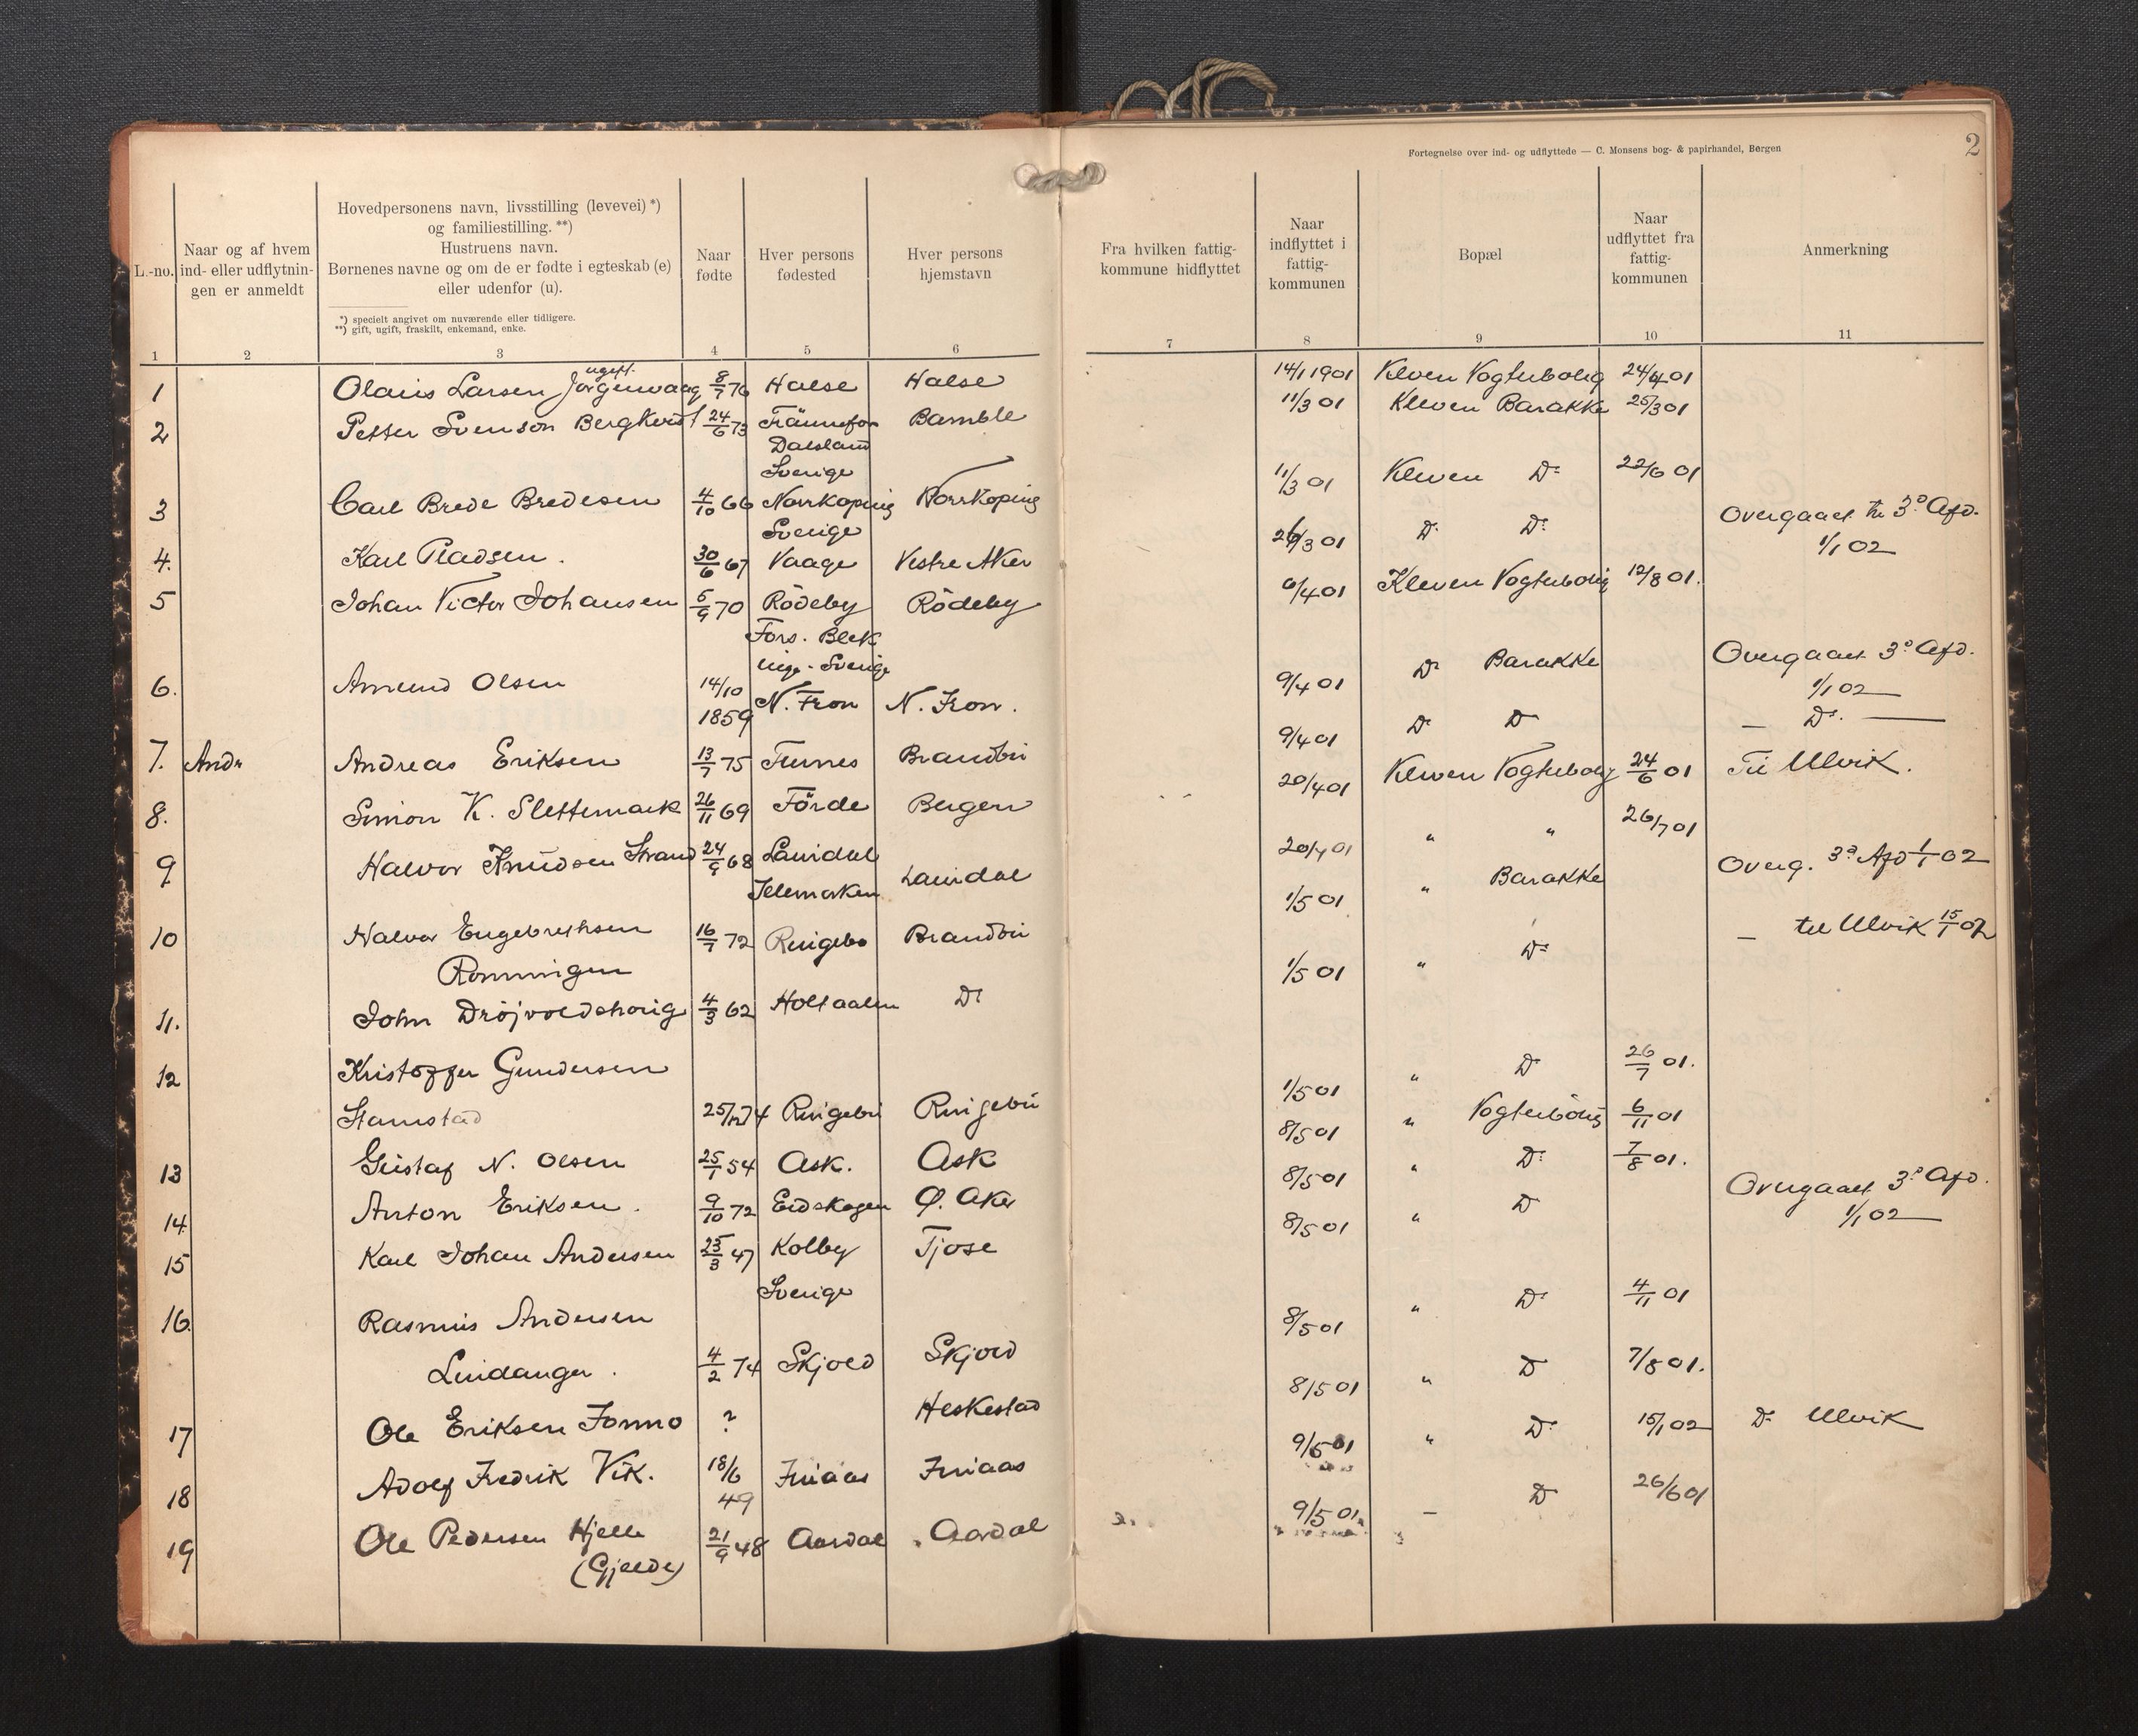 Fortegnelse over ind- og udflyttede — C. Monsens bog- & papirhandel, Bergen
2
L.-no.
Naar og af hvem
ind- eller udflytnin-
gen er anmeldt
Hovedpersonens navn, livsstilling (levevei) *)
og familiestilling. **)
Hustruens navn.
Børnenes navne og om de er fødte i egteskab (e)
eller udenfor (u).
*) specielt angivet om nuværende eller tidligere.
**) gift, ugift, fraskilt, enkemand, enke.
Naar
fødte
Hver persons
fødested
Hver persons
hjemstavn
Fra hvilken fattig-
kommune hidflyttet
Naar
indflyttet i
fattig-
kommunen
Bopæl
Naar
udflyttet fra
fattig-
kommunen
Anmerkning
1 2 3 4 5 6 7 8 9 10 11
ugift.
1 Olaus Larsen Jørgenvaag 8/7 76 Halse Halse 14/1 1901 Kleven Vogterbolig 24/4 01
2 Petter Svenson Bergkvist 24/6 73 Bamble 11/3 01 Kleven Barakke 25/3 01
Dalsland
Sverige
3 Carl Brede Bredesen 4/10 66 Norrkoping Norrkoping 11/3 01 Kleven Do 22/6 01
Sverige
4. Karl Pladsen. 30/6 67 Vaage Vestre Aker 26/3 01 Do Do Overgaaet til 3o Afd.
1/1 02
5 Johan Victor Johansen 5/9 70 Rödeby Rödeby 6/4 01 Kleven Vogterbolig 12/8 01.
Fors. Blek
inge. Sverige
6. Amund Olsen 14/10 1859 N. Fron N. Fron. 9/4 01 Do Barakke Overgaaet 3o Afd.
1/1 02
7. Andr Andreas Eriksen 13/7 75 Furnes Brandbu 9/4 01 Do Do — Do. —
8. Simon K. Slettemark 26/11 69 Förde Bergen 20/4 01 Kleven Vogterbolig 24/6 01 Til Ulvik.
9 Halvor Knudsen Strand 24/9 68 Laurdal Laurdal 20/4 01 " " 26/7 01
Telemarken
10 Halvor Engebrethsen 16/7 72 Ringebo Brandbu 1/5 01 " Barakke Overg. 3o Afd 1/1 02
Rønningen
11. John Drøjvoldshaug 4/3 62 Holtaalen Do 1/5 01 " Do — til Ulvik 15/1 02
12 Kristoffer Gundersen
Stamstad 25/12 74 Ringebu Ringebu 1/5 01 " Do 26/7 01.
13 Gustaf N. Olsen 25/1 54 Ask. Ask 8/5 01 " Vogterbolig 6/11 01
14 Anton Eriksen. 9/10 72 Eidskogen Ø. Aker 8/5 01 " Do 7/8 01.
15 Karl Johan Andersen 25/3 47 Kolby Tjose 8/5 01 " Do Overgaaet 3o Afd.
1/1 02
Sverige
16. Rasmus Andersen
Lindanger. 4/2 74 Skjold Skjold 8/5 01 " Do 4/11 01
17 Ole Eriksen Jormo ? Heskestad 8/5 01 " Do 7/8 01.
18 Adolf Fredrik Vik. 18/6 49 Finaas Finaas 9/5 01 " Do 15/1 02 Do Ulvik
19 Ole Pedersen Hjelle 21/9 48 Aardal Aardal 9/5 01. — Do 26/6 01
(Gjelde)